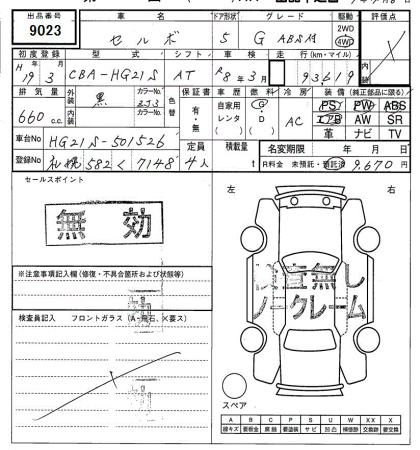 出品番号 車名 ドア形状 グレード 駆動 評価点
9023 セルボ 5 G ABSM 2WD 4WD
内装
初度登録 型式 シフト 車検 走行(km・マイル)
H19 3 CBA-HG21S AT R8年3月 93619
排気量 外装 黒 カラーNo. ZJ3 色替 保証書 車歴 燃料 冷房 装備(純正部品に限る)
660 c.c. 内装 カラーNo. 有・無 自家用 レンタ ( ) G・D AC PS PW ABS
エアB AW SR
革 ナビ TV
車台No HG21S-501526 定員 積載量 名変期限 年 月 日
登録No 札幌 582 く 7148 4人 t R料金 未預託・預託済 9,670円
セールスポイント
左 右
無効
※注意事項記入欄(修復・不具合箇所および状態等)
検査無し
ノークレーム
検査員記入 フロントガラス(A-飛石、X要ス)
スペア
A B C P S U W X XX
線キズ 要板金 腐蝕 要塗装 サビ 凹凸 補修跡 交換跡 要交換